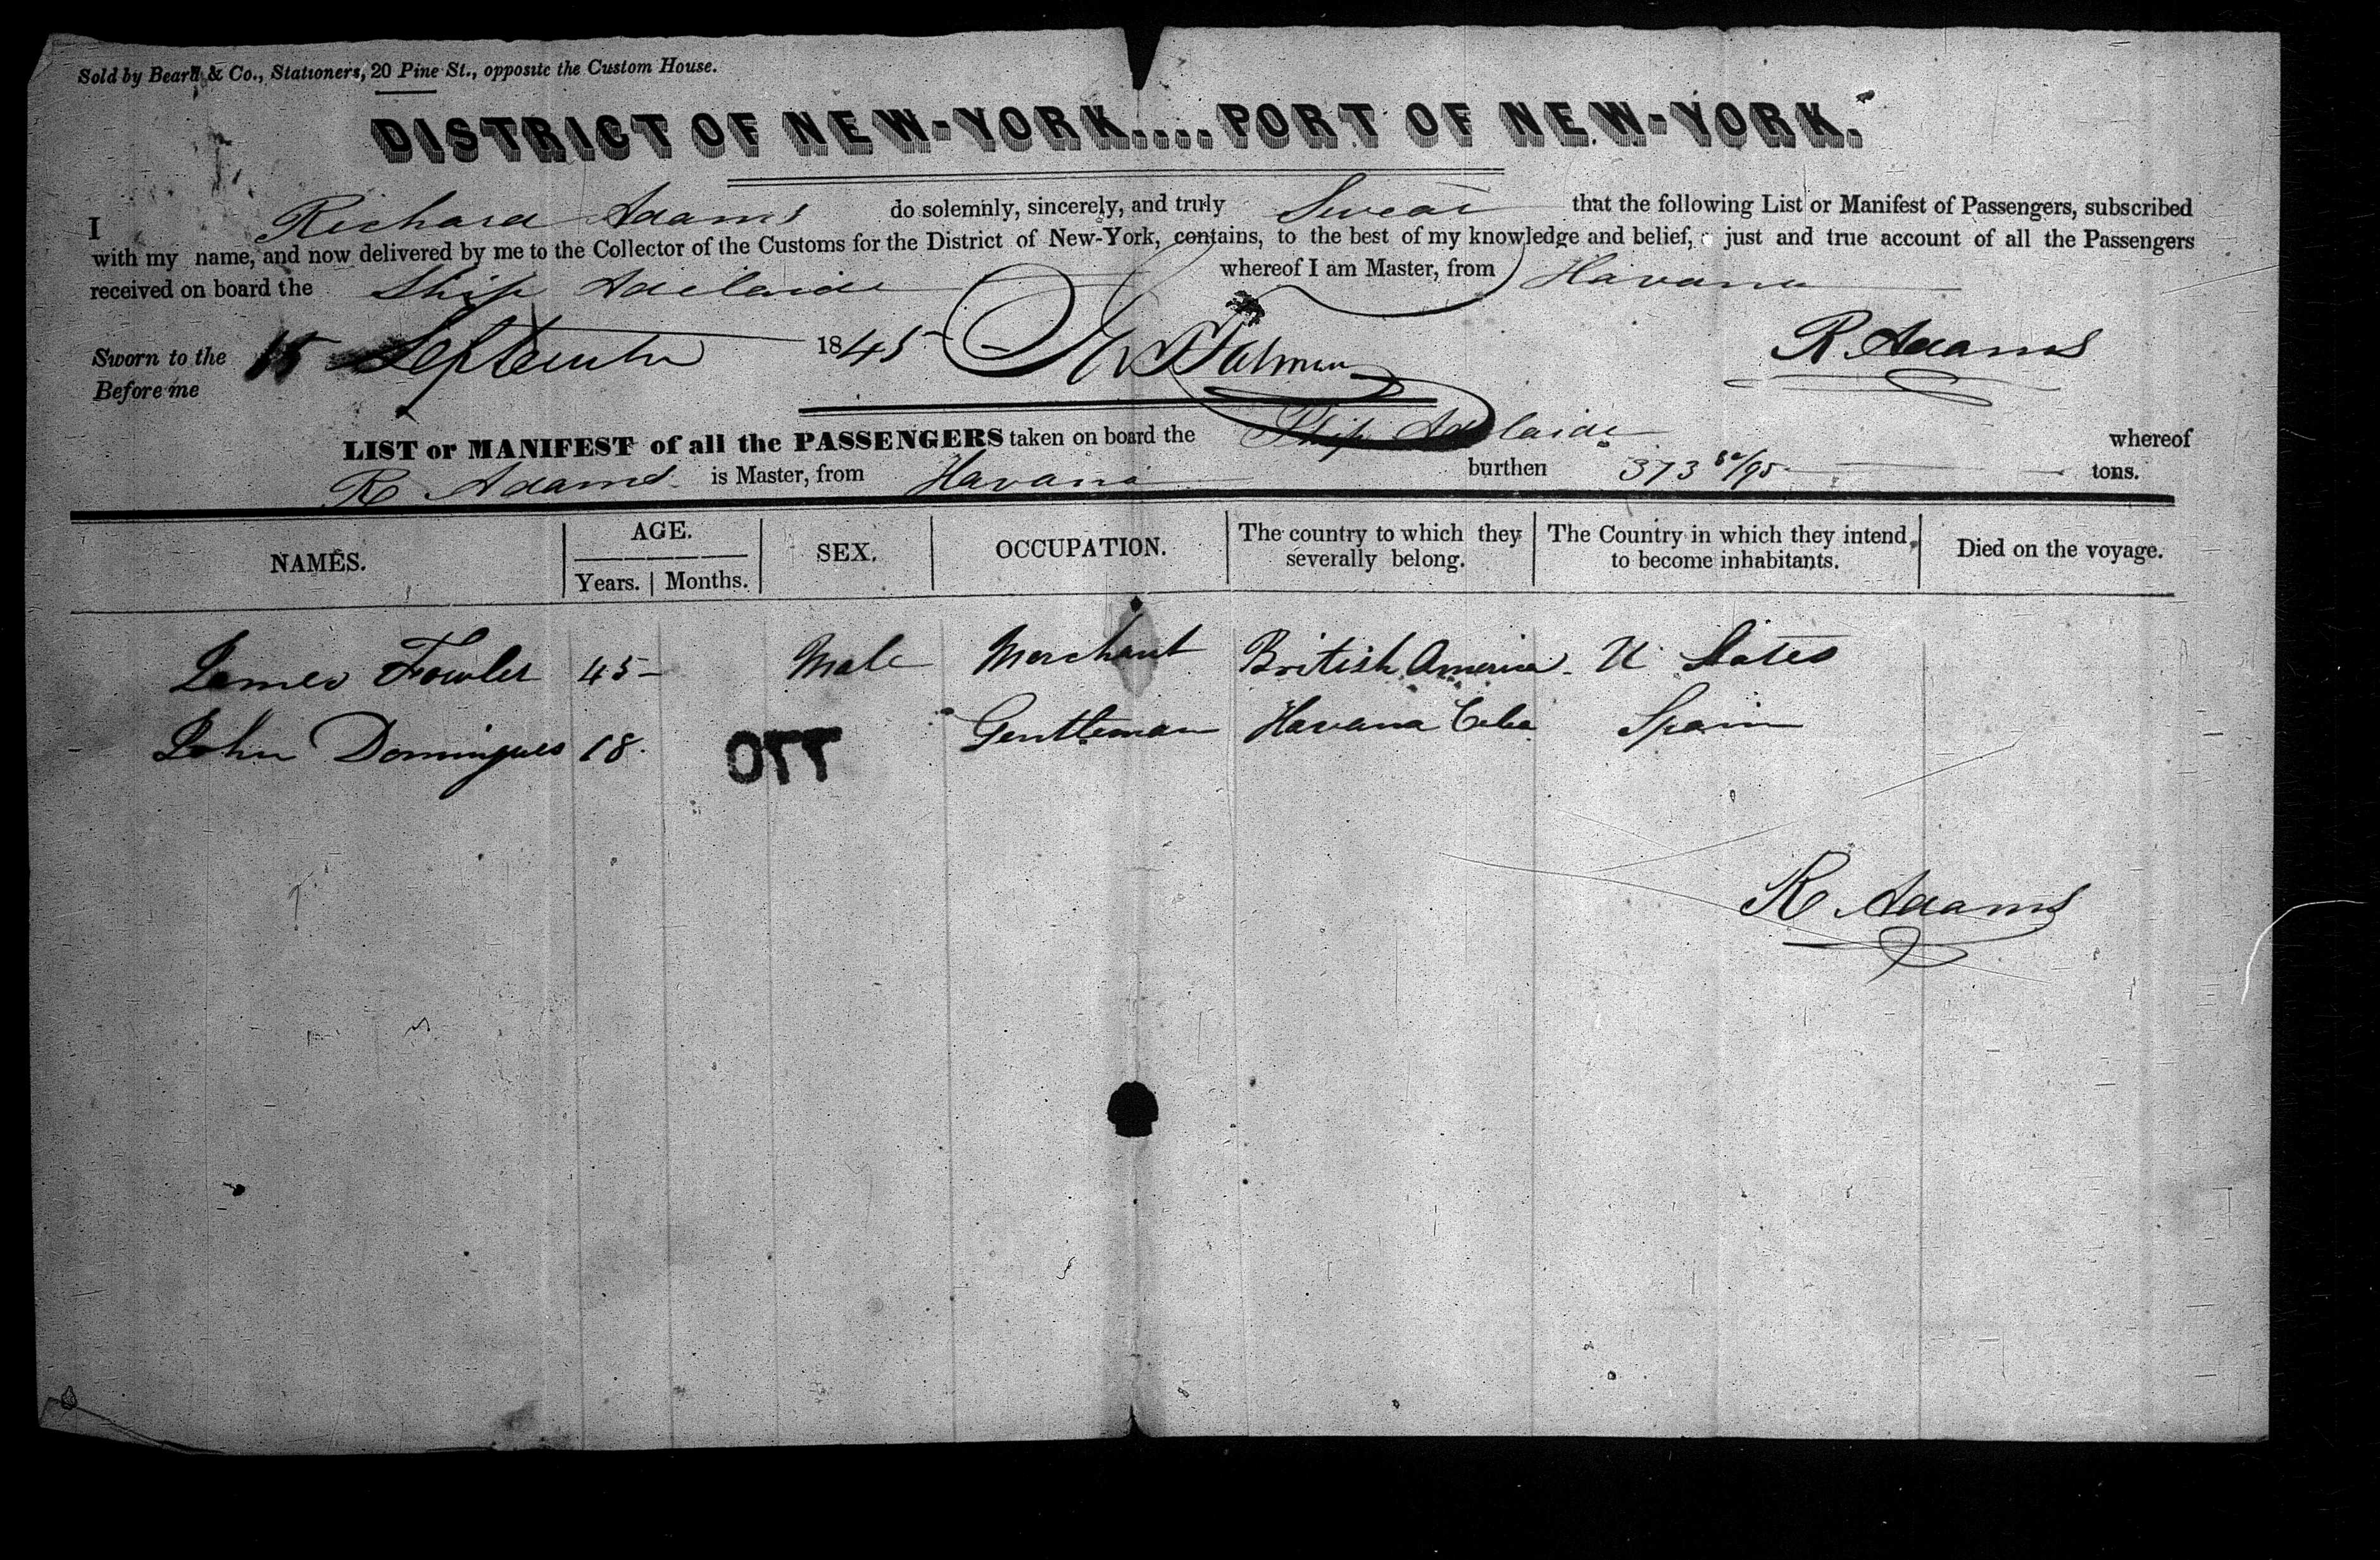 Sold by Beard & Co., Stationers, 20 Pine St., opposite the Custom House.
DISTRICT OF NEW-YORK....PORT OF NEW-YORK.
I Richard Adams do solemnly, sincerely, and truly Swear that the following List or Manifest of Passengers, subscribed
with my name, and now delivered by me to the Collector of the Customs for the District of New-York, contains, to the best of my knowledge and belief, a just and true account of all the Passengers
received on board the Ship Adelaide whereof I am Master, from Havana
Sworn to the 15 September 1845 R. Adams
Before me
LIST or MANIFEST of all the PASSENGERS taken on board the Ship Adelaide whereof
R Adams is Master, from Havana burthen 373 tons.
NAMES. AGE. Years. Months. SEX. OCCUPATION. The country to which they severally belong. The Country in which they intend to become inhabitants. Died on the voyage.
James Fowler 45 Male Merchant British America U States
John Domingues 18. Gentleman Havana Cuba Spain
R Adams